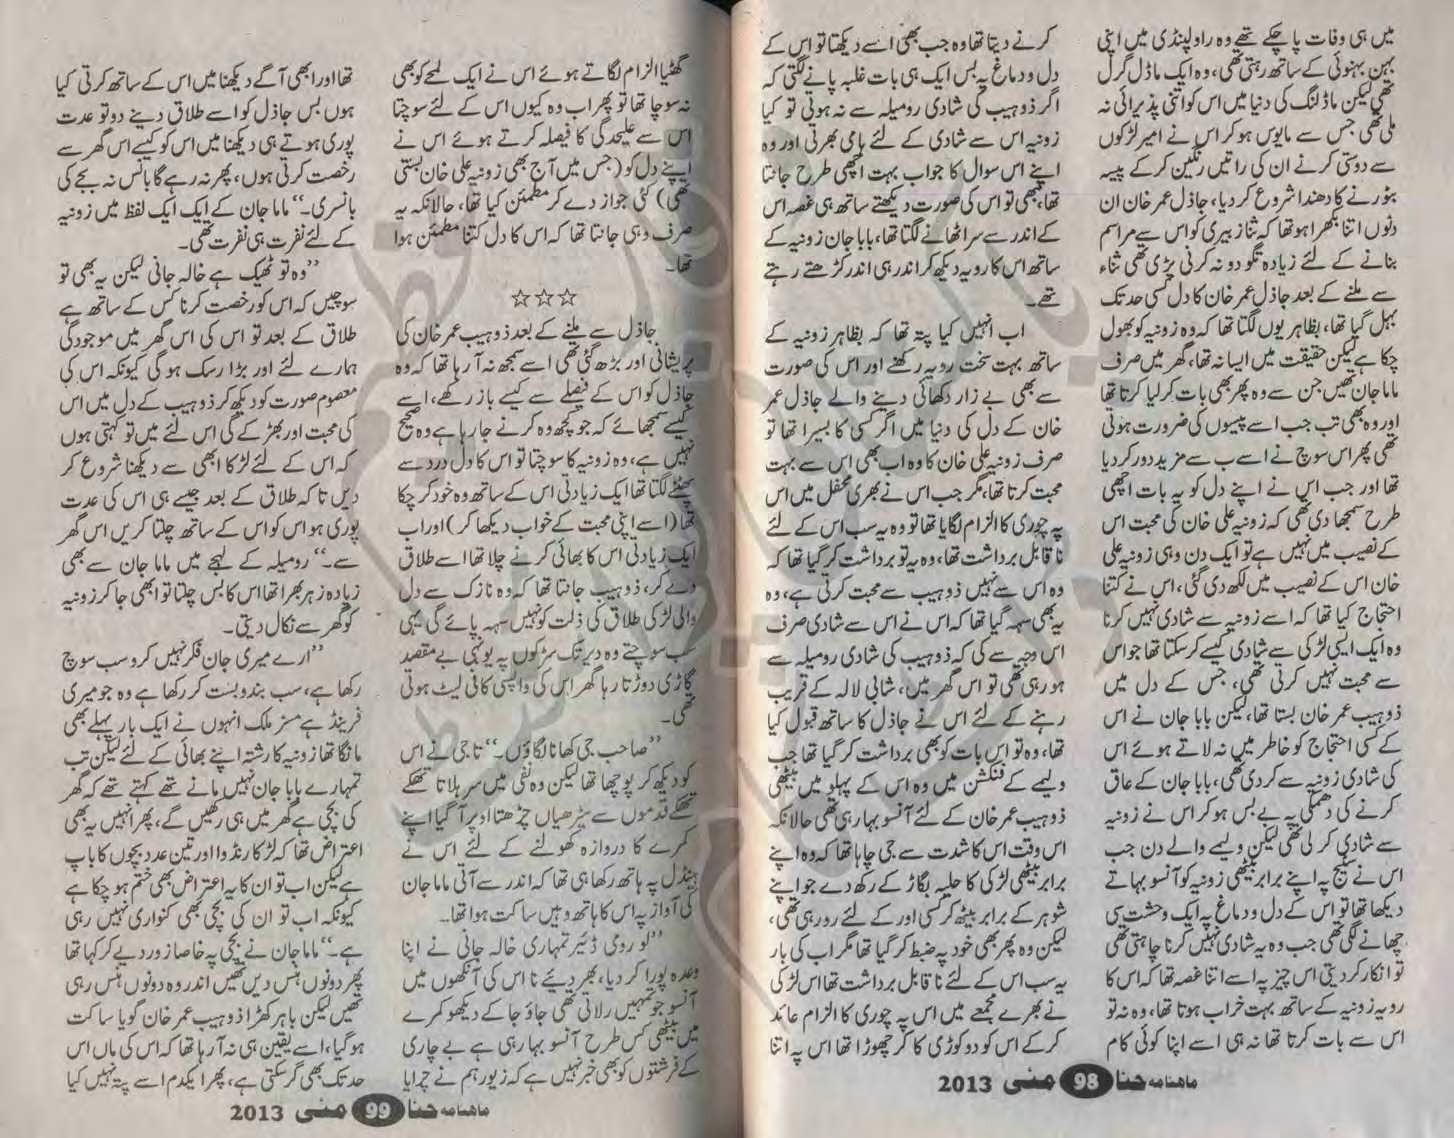 میں ہی وفات پا چکے تھے وہ راولپنڈی میں اپنی
بہن بہنوئی کے ساتھ رہتی تھی، وہ ایک ماڈل گرل
تھی لیکن ماڈلنگ کی دنیا میں اس کو اتنی پذیرائی نہ
ملی تھی جس سے مایوس ہو کر اس نے امیر لڑکوں
سے دوستی کرنے ان کی راتیں رنگین کر کے پیسہ
بٹورنے کا دھندا شروع کر دیا، جاذل عمر خان ان
دنوں اتنا بکھرا ہوا تھا کہ ثنا زبیری کو اس سے مراسم
بنانے کے لئے زیادہ تگ و دو نہ کرنی پڑی تھی ثناء
سے ملنے کے بعد جاذل عمر خان کا دل کسی حد تک
بہل گیا تھا، بظاہر یوں لگتا تھا کہ وہ زونیہ کو بھول
چکا ہے لیکن حقیقت میں ایسا نہ تھا، گھر میں صرف
ماما جان تھیں جن سے وہ پھر بھی بات کر لیا کرتا تھا
اور وہ بھی تب جب اسے پیسوں کی ضرورت ہوتی
تھی پھر اس سوچ نے اسے سب سے مزید دور کر دیا
تھا اور جب اس نے اپنے دل کو یہ بات اچھی
طرح سمجھا دی تھی کہ زونیہ علی خان کی محبت اس
کے نصیب میں نہیں ہے تو ایک دن وہی زونیہ علی
خان اس کے نصیب میں لکھ دی گئی، اس نے کتنا
احتجاج کیا تھا کہ اسے زونیہ سے شادی نہیں کرنا
وہ ایک ایسی لڑکی سے شادی کیسے کر سکتا تھا جو اس
سے محبت نہیں کرتی تھی، جس کے دل میں
ذوہیب عمر خان بستا تھا، لیکن بابا جان نے اس
کے کسی احتجاج کو خاطر میں نہ لاتے ہوئے اس
کی شادی زونیہ سے کر دی تھی، بابا جان کے عاق
کرنے کی دھمکی پہ بے بس ہو کر اس نے زونیہ
سے شادی کر لی تھی لیکن ولیمے والے دن جب
اس نے سٹیج پہ اپنے برابر بیٹھی زونیہ کو آنسو بہاتے
دیکھا تھا تو اس کے دل و دماغ پہ ایک وحشت سی
چھانے لگی تھی جب وہ یہ شادی نہیں کرنا چاہتی تھی
تو انکار کر دیتی اس چیز پہ اسے اتنا غصہ تھا کہ اس کا
رویہ زونیہ کے ساتھ بہت خراب ہوتا تھا، وہ نہ تو
اس سے بات کرتا تھا نہ ہی اسے اپنا کوئی کام
کرنے دیتا تھا وہ جب بھی اسے دیکھتا تو اس کے
دل و دماغ پہ بس ایک ہی بات غلبہ پانے لگتی کہ
اگر ذوہیب کی شادی رومیلہ سے نہ ہوتی تو کیا
زونیہ اس سے شادی کے لئے ہامی بھرتی اور وہ
اپنے اس سوال کا جواب بہت اچھی طرح جانتا
تھا، جبھی تو اس کی صورت دیکھتے ساتھ ہی غصہ اس
کے اندر سے سر اٹھانے لگتا تھا، بابا جان زونیہ کے
ساتھ اس کا رویہ دیکھ کر اندر ہی اندر کڑھتے رہتے
تھے۔
اب انہیں کیا پتہ تھا کہ بظاہر زونیہ کے
ساتھ بہت سخت رویہ رکھنے اور اس کی صورت
سے بھی بے زار دکھائی دینے والے جاذل عمر
خان کے دل کی دنیا میں اگر کسی کا بسیرا تھا تو
صرف زونیہ علی خان کا وہ اب بھی اس سے بہت
محبت کرتا تھا، مگر جب اس نے بھری محفل میں اس
پہ چوری کا الزام لگایا تھا تو وہ یہ سب اس کے لئے
نا قابل برداشت تھا، وہ یہ تو برداشت کر گیا تھا کہ
وہ اس سے نہیں ذوہیب سے محبت کرتی ہے، وہ
یہ بھی سہہ گیا تھا کہ اس نے اس سے شادی صرف
اس وجہ سے کی کہ ذوہیب کی شادی رومیلہ سے
ہو رہی تھی تو اس گھر میں، شاہی لالہ کے قریب
رہنے کے لئے اس نے جاذل کا ساتھ قبول کیا
تھا، وہ تو اس بات کو بھی برداشت کر گیا تھا جب
ولیمے کے فنکشن میں وہ اس کے پہلو میں بیٹھی
ذوہیب عمر خان کے لئے آنسو بہا رہی تھی حالانکہ
اس وقت اس کا شدت سے جی چاہا تھا کہ وہ اپنے
برابر بیٹھی لڑکی کا حلیہ بگاڑ کے رکھ دے جو اپنے
شوہر کے برابر بیٹھ کر کسی اور کے لئے رو رہی تھی،
لیکن وہ پھر بھی خود پہ ضبط کر گیا تھا مگر اب کی بار
یہ سب اس کے لئے نا قابل برداشت تھا اس لڑکی
نے بھرے مجمعے میں اس پہ چوری کا الزام عائد
کر کے اس کو دو کوڑی کا کر چھوڑا تھا اس پہ اتنا
ماهنامہ حنا 98 مئی 2013
گھٹیا الزام لگاتے ہوئے اس نے ایک لمحے کو بھی
نہ سوچا تھا تو پھر اب وہ کیوں اس کے لئے سوچتا
اس سے علیحدگی کا فیصلہ کرتے ہوئے اس نے
اپنے دل کو (جس میں آج بھی زونیہ علی خان بستی
تھی) کئی جواز دے کر مطمئن کیا تھا، حالانکہ یہ
صرف وہی جانتا تھا کہ اس کا دل کتنا مطمئن ہوا
تھا۔
☆☆☆
جاذل سے ملنے کے بعد ذوہیب عمر خان کی
پریشانی اور بڑھ گئی تھی اسے سمجھ نہ آ رہا تھا کہ وہ
جاذل کو اس کے فیصلے سے کیسے باز رکھے، اسے
کیسے سمجھائے کہ جو کچھ وہ کرنے جا رہا ہے وہ صحیح
نہیں ہے، وہ زونیہ کا سوچتا تو اس کا دل درد سے
پھٹنے لگتا تھا ایک زیادتی اس کے ساتھ وہ خود کر چکا
تھا (اسے اپنی محبت کے خواب دیکھا کر) اور اب
ایک زیادتی اس کا بھائی کرنے چلا تھا اسے طلاق
دے کر، ذوہیب جانتا تھا کہ وہ نازک سے دل
والی لڑکی طلاق کی ذلت کو نہیں سہہ پائے گی یہی
سب سوچتے وہ دیر تک سڑکوں پہ یونہی بے مقصد
گاڑی دوڑتا رہا گھر اس کی واپسی کافی لیٹ ہوئی
تھی۔
”صاحب جی کھانا لگاؤں۔“ تاجی نے اس
کو دیکھ کر پوچھا تھا لیکن وہ نفی میں سر ہلاتا تھکے
تھکے قدموں سے سیڑھیاں چڑھتا اوپر آ گیا اپنے
کمرے کا دروازہ کھولنے کے لئے اس نے
ہینڈل پہ ہاتھ رکھا ہی تھا کہ اندر سے آتی ماما جان
کی آواز پہ اس کا ہاتھ وہیں ساکت ہوا تھا۔
”لو رومی ڈئیر تمہاری خالہ جانی نے اپنا
وعدہ پورا کر دیا، بھر دیئے نا اس کی آنکھوں میں
آنسو جو تمہیں رلاتی تھی جاؤ جا کے دیکھو کمرے
میں بیٹھی کس طرح آنسو بہا رہی ہے بے چاری
کے فرشتوں کو بھی خبر نہیں ہے کہ زیور ہم نے چرایا
تھا اور ابھی آگے دیکھنا میں اس کے ساتھ کرتی کیا
ہوں بس جاذل کو اسے طلاق دینے دو تو عدت
پوری ہوتے ہی دیکھنا میں اس کو کیسے اس گھر سے
رخصت کرتی ہوں، پھر نہ رہے گا بانس نہ بجے کی
بانسری۔“ ماما جان کے ایک ایک لفظ میں زونیہ
کے لئے نفرت ہی نفرت تھی۔
”وہ تو ٹھیک ہے خالہ جانی لیکن یہ بھی تو
سوچیں کہ اس کو رخصت کرنا کس کے ساتھ ہے
طلاق کے بعد تو اس کی اس گھر میں موجودگی
ہمارے لئے اور بڑا رسک ہو گی کیونکہ اس کی
معصوم صورت کو دیکھ کر ذوہیب کے دل میں اس
کی محبت اور بھڑکے گی اس لئے میں تو کہتی ہوں
کہ اس کے لئے لڑکا ابھی سے دیکھنا شروع کر
دیں تا کہ طلاق کے بعد جیسے ہی اس کی عدت
پوری ہو اس کو اس کے ساتھ چلتا کریں اس گھر
سے۔“ رومیلہ کے لہجے میں ماما جان سے بھی
زیادہ زہر بھرا تھا اس کا بس چلتا تو ابھی جا کر زونیہ
کو گھر سے نکال دیتی۔
”ارے میری جان فکر نہیں کرو سب سوچ
رکھا ہے، سب بندوبست کر رکھا ہے وہ جو میری
فرینڈ ہے مسز ملک انہوں نے ایک بار پہلے بھی
مانگا تھا زونیہ کا رشتہ اپنے بھائی کے لئے لیکن تب
تمہارے بابا جان نہیں مانے تھے کہتے تھے کہ گھر
کی بچی ہے گھر میں ہی رکھیں گے، پھر انہیں یہ بھی
اعتراض تھا کہ لڑکا رنڈوا اور تین عدد بچوں کا باپ
ہے لیکن اب تو ان کا یہ اعتراض بھی ختم ہو چکا ہے
کیونکہ اب تو ان کی بچی بھی کنواری نہیں رہی
ہے۔“ ماما جان نے بچی پہ خاصا زور دے کر کہا تھا
پھر دونوں ہنس دیں تھیں اندر وہ دونوں ہنس رہی
تھیں لیکن باہر کھڑا ذوہیب عمر خان گویا ساکت
ہو گیا، اسے یقین ہی نہ آ رہا تھا کہ اس کی ماں اس
حد تک بھی گر سکتی ہے، پھر ایکدم اسے پتہ نہیں کیا
ماهنامہ حنا 99 مئی 2013